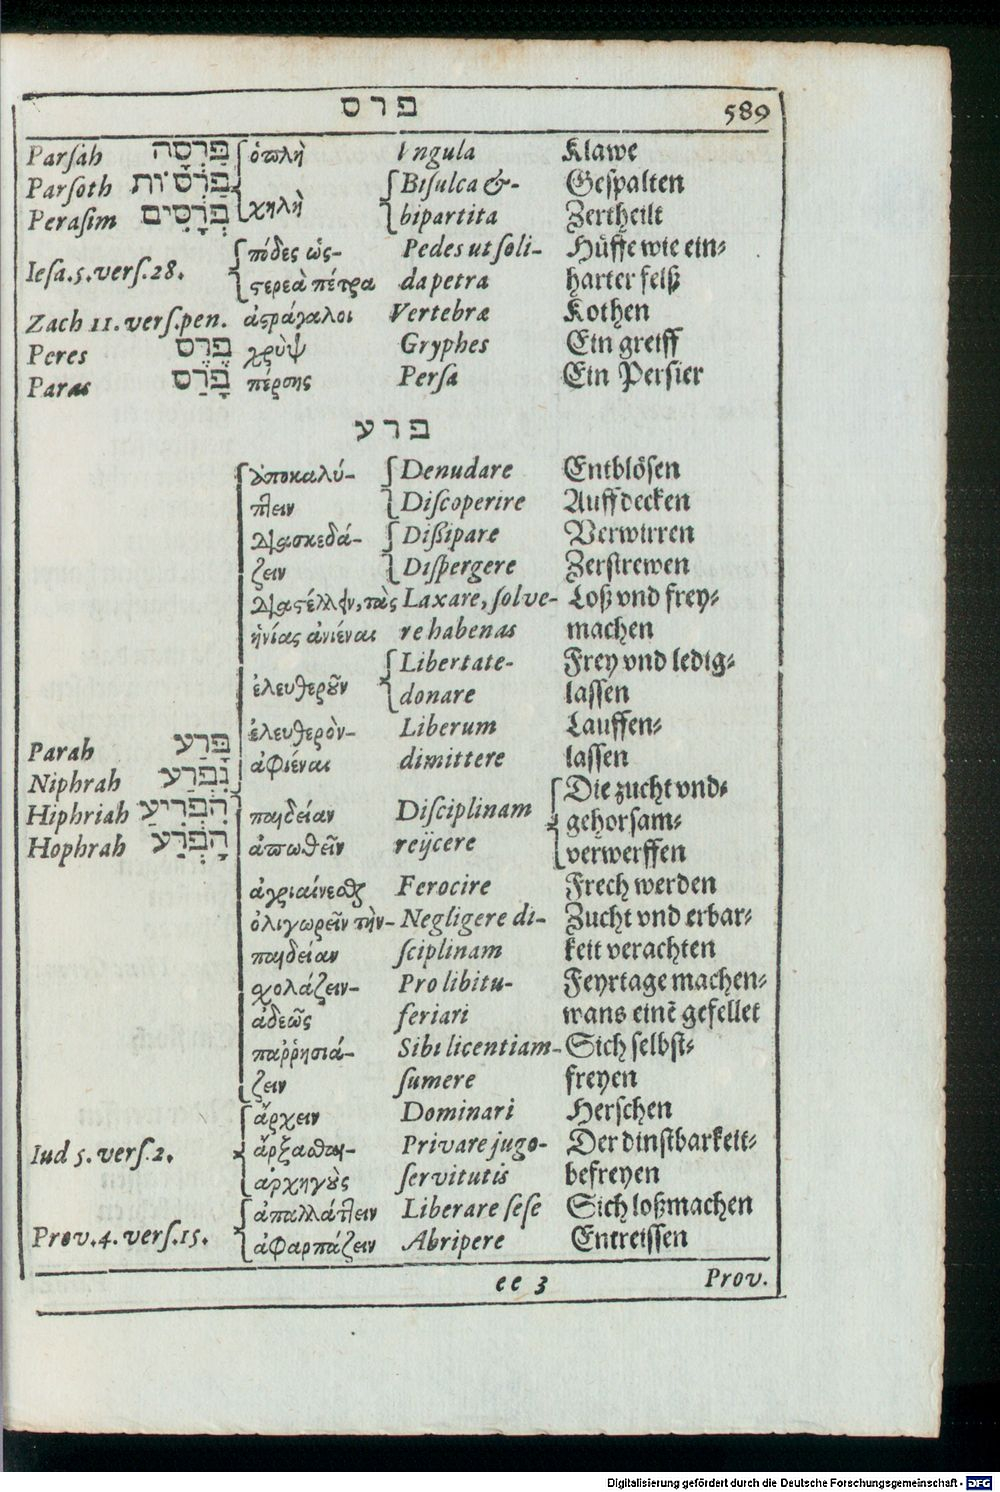 פרס 589
Parsah פַּרְסָה ὁπλὴ Vngula Klawe
Parſoth פַּרְסוֹת Biſulca &- Geſpalten
Peraſim פְּרָסִים χηλὴ bipartita Zertheilt
πόδες ὡς- Pedes ut ſoli- Hüffe wie ein-
Ieſa.5.verſ.28. ςερεὰ πέτρα da petra harter felß
Zach 11.verſ.pen. ἀςράγαλοι Vertebræ Kothen
Peres פֶּרֶס γρὺψ Gryphes Ein greiff
Paras פָּרַס πέρσης Perſa Ein Perſier
פרע
ἀποκαλύ- Denudare Entblöſen
πτειν Diſcoperire Auffdecken
διασκεδά- Dißipare Verwirren
ζειν Diſpergere Zerſtrewen
διαςέλλειν, τὰς Laxare, ſolve- Loß vnd frey-
ἡνίας ἀνιέναι re habenas machen
Libertate- Frey vnd ledig-
ἐλευθεροῦν donare laſſen
ἐλευθερὸν- Liberum Lauffen-
Parah פָּרַע ἀφιέναι dimittere laſſen
Niphrah נִפְרַע Die zucht vnd-
Hiphriah הִפְרִיעַ παιδείαν Diſciplinam gehorſam-
Hophrah הָפְרַע ἀπωθεῖν reijcere verwerffen
ἀγριαίνεσθαι Ferocire Frech werden
ὀλιγωρεῖν τὴν- Negligere di- Zucht vnd erbar-
παιδείαν ſciplinam keit verachten
σχολάζειν- Pro libitu- Feyrtage machen-
ἀδεῶς feriari wans einē gefellet
παῤῥησιά- Sibi licentiam- Sich ſelbſt-
ζειν ſumere freyen
ἄρχειν Dominari Herſchen
Iud 5. verſ.2. ἄρξασθαι- Privare jugo- Der dinſtbarkeit-
ἀρχηγοὺς ſervitutis befreyen
ἀπαλλάττειν Liberare ſeſe Sich loßmachen
Prov.4.verſ.15. ἀφαρπάζειν Abripere Entreiſſen
ee 3 Prov.
Digitalisierung gefördert durch die Deutsche Forschungsgemeinschaft - DFG